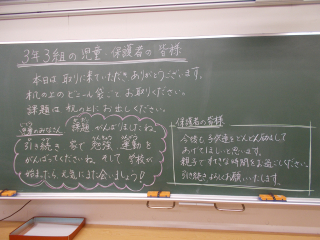 3年3組の児童・保護者の皆様
本日は取りに来ていただきありがとうございます。
机の上のビニール袋ごとお取りください。
課題は机の上にお出しください。
児童のみなさん
課題がんばりましたね。
引き続き家で勉強、運動を
がんばってくださいね。そして学校が
始まったら、元気にまた会いましょう!
保護者の皆様
今後も子供達をどんどんほめて
あげてほしいと思います。
親子ですてきな時間をお過ごしください。
引き続きよろしくお願いいたします。